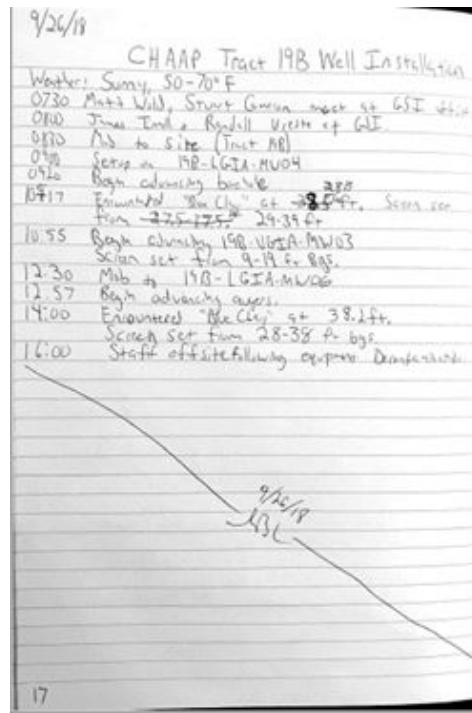 9/26/18
CHAAP Tract 19B Well Installation
Weather: Sunny, 50-70° F
0730 Matt Wild, Stuart meet at GSI office
0800 James Randall at GSI
0830 Mob to site (Tract 19B)
Setup on 19B-LGIA-MW04
0920 Begin advancing borehole
Encountered "Blue Clay" at ft. Screen set
from 29-39 ft
10:55 Begin advancing 19B-UGIA-MW03
Screen set from 9-19 ft bgs.
12:30 Mob to 19B-LGIA-MW06
12:57 Begin advancing augers.
14:00 Encountered "Blue Clay" at 38.2 ft.
Screen set from 28-38 ft bgs.
16:00 Staff offsite following equipment
9/26/18
17